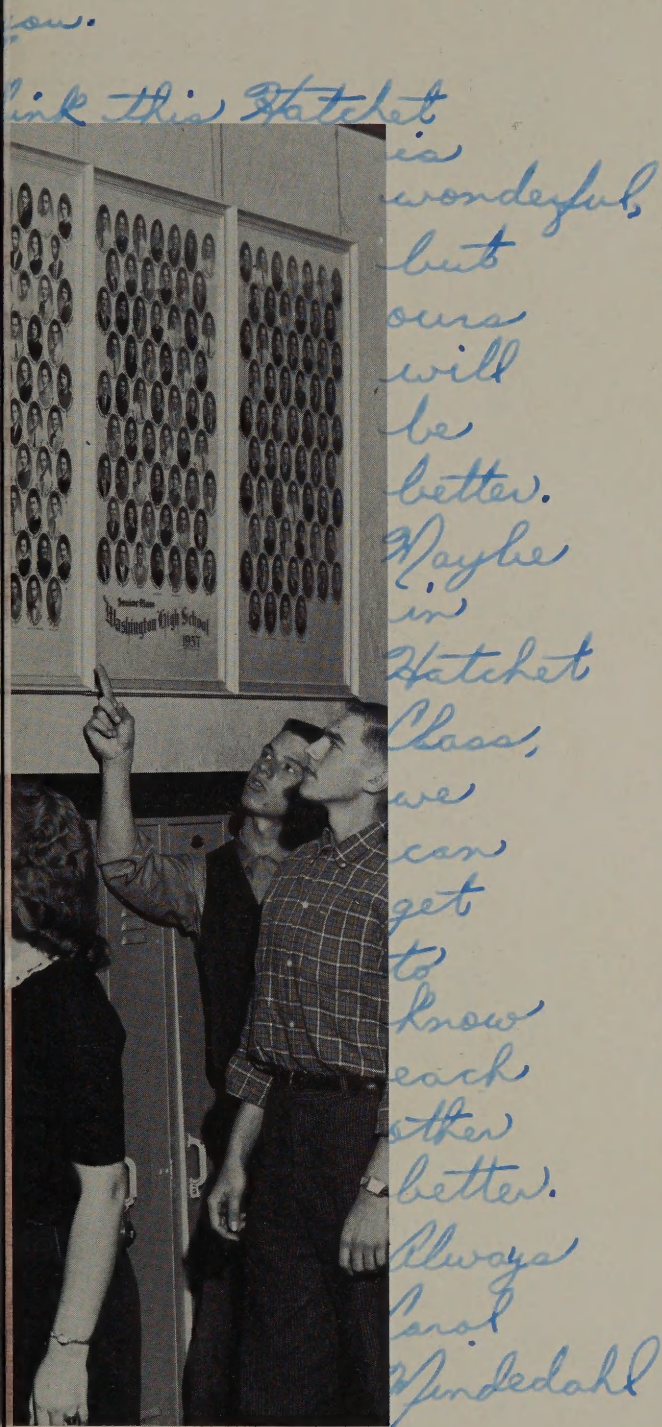 you.
ink this Hatchet
is
wonderful,
but
ours
will
be
better.
Maybe
in
Hatchet
Class,
we
can
get
to
know
each
other
better.
Always
Carol
Mindedahl
Senior Class
Washington High School
1957